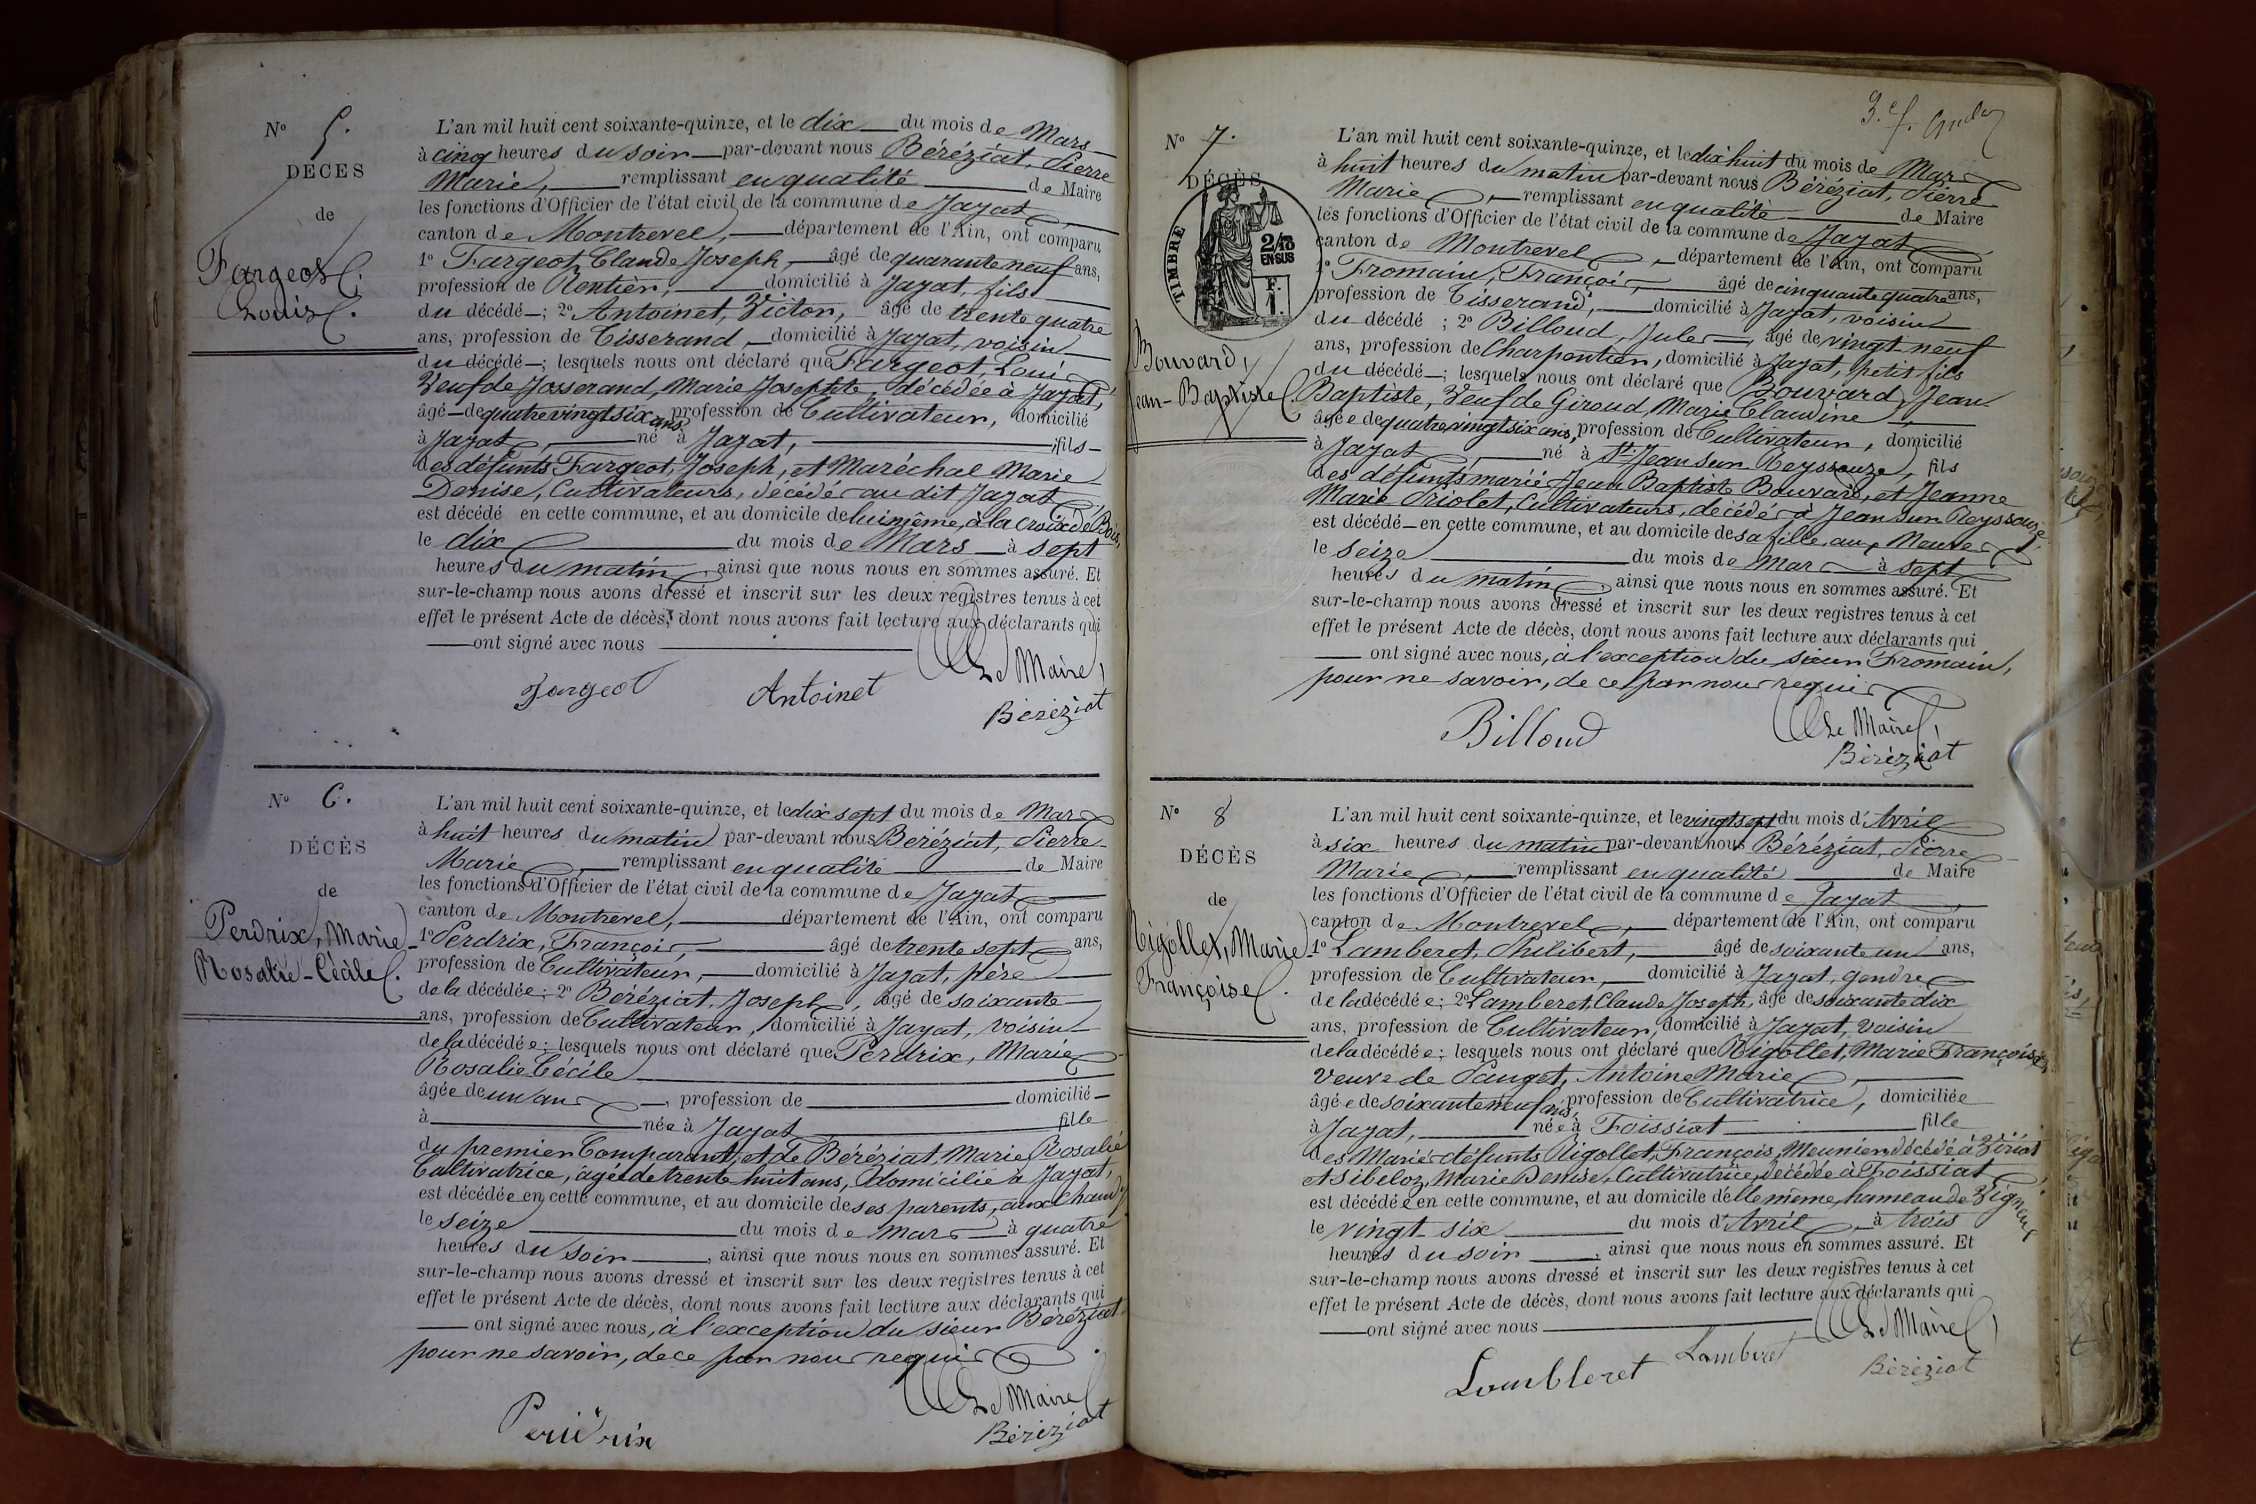 N° 5.
DÉCÈS
de
Fargeot
Louis.
L'an mil huit cent soixante-quinze, et le dix du mois de Mars
à cinq heures du soir par-devant nous Béréziat, Pierre
Marie, remplissant en qualité de Maire
les fonctions d'Officier de l'état civil de la commune de Jayat
canton de Montrevel, département de l'Ain, ont comparu
1° Fargeot, Claude Joseph, âgé de quarante neuf ans,
profession de Rentier, domicilié à Jayat, fils
du décédé ; 2° Antoinet, Victor, âgé de trente quatre
ans, profession de Tisserand, domicilié à Jayat, voisin
du décédé ; lesquels nous ont déclaré que Fargeot, Louis
Veuf de Josserand, Marie Josephte, décédée à Jayat,
âgé de quatre vingt six ans, profession de Cultivateur, domicilié
à Jayat, né à Jayat, fils
des défunts Fargeot, Joseph, et Maréchal Marie
Denise, Cultivateurs, décédés au dit Jayat
est décédé en cette commune, et au domicile de lui même, à la croix de Bois,
le dix du mois de Mars à sept
heures du matin, ainsi que nous nous en sommes assuré. Et
sur-le-champ nous avons dressé et inscrit sur les deux registres tenus à cet
effet le présent Acte de décès, dont nous avons fait lecture aux déclarants qui
ont signé avec nous
Fargeot Antoinet Le Maire,
Béréziat
N° 6.
DÉCÈS
de
Perdrix, Marie
Rosalie-Cécile.
L'an mil huit cent soixante-quinze, et le dix sept du mois de Mars
à huit heures du matin par-devant nous Béréziat, Pierre
Marie, remplissant en qualité de Maire
les fonctions d'Officier de l'état civil de la commune de Jayat
canton de Montrevel, département de l'Ain, ont comparu
1° Perdrix, François, âgé de trente sept ans,
profession de Cultivateur, domicilié à Jayat, père
de la décédée ; 2° Béréziat, Joseph, âgé de soixante
ans, profession de Cultivateur, domicilié à Jayat, voisin
de la décédée ; lesquels nous ont déclaré que Perdrix, Marie
Rosalie Cécile
âgée de un an, profession de domicilié
à née à Jayat fille
du premier Comparant, et de Béréziat, Marie Rosalie
Cultivatrice, âgée de trente huit ans, domicilié à Jayat,
est décédée en cette commune, et au domicile de ses parents, aux Chaudy
le seize du mois de Mars à quatre
heures du soir, ainsi que nous nous en sommes assuré. Et
sur-le-champ nous avons dressé et inscrit sur les deux registres tenus à cet
effet le présent Acte de décès, dont nous avons fait lecture aux déclarants qui
ont signé avec nous, à l'exception du sieur Béréziat
pour ne savoir, de ce par nous requis.
Perdrix Le Maire
Béréziat
3.e f.
N° 7.
DÉCÈS
TIMBRE
2/10 EN SUS
F. 1.
Bouvard,
Jean-Baptiste
L'an mil huit cent soixante-quinze, et le dix huit du mois de Mars
à huit heures du matin par-devant nous Béréziat, Pierre
Marie, remplissant en qualité de Maire
les fonctions d'Officier de l'état civil de la commune de Jayat
canton de Montrevel, département de l'Ain, ont comparu
1° Fromain, François, âgé de cinquante quatre ans,
profession de Tisserand, domicilié à Jayat, voisin
du décédé ; 2° Billoud, Jules, âgé de vingt neuf
ans, profession de Charpentier, domicilié à Jayat, petit fils
du décédé ; lesquels nous ont déclaré que Bouvard, Jean
Baptiste, Veuf de Giroud, Marie Claudine
âgée de quatre vingt six ans, profession de Cultivateur, domicilié
à Jayat, né à St. Jean sur Reyssouze, fils
des défunts mariés Jean Baptiste Bouvard, et Jeanne
Marie Driolet, Cultivateurs, décédés à Jean sur Reyssouze,
est décédé en cette commune, et au domicile de sa fille, aux Meuves
le seize du mois de Mars à sept
heures du matin, ainsi que nous nous en sommes assuré. Et
sur-le-champ nous avons dressé et inscrit sur les deux registres tenus à cet
effet le présent Acte de décès, dont nous avons fait lecture aux déclarants qui
ont signé avec nous, à l'exception du sieur Fromain,
pour ne savoir, de ce par nous requis
Billoud Le Maire,
Béréziat
N° 8
DÉCÈS
de
Rigollet, Marie
Françoise.
L'an mil huit cent soixante-quinze, et le vingt sept du mois d'Avril
à six heures du matin par-devant nous Béréziat, Pierre
Marie, remplissant en qualité de Maire
les fonctions d'Officier de l'état civil de la commune de Jayat
canton de Montrevel, département de l'Ain, ont comparu
1° Lamberet, Philibert, âgé de soixante un ans,
profession de Cultivateur, domicilié à Jayat, gendre
de la décédée ; 2° Lamberet, Claude Joseph, âgé de soixante dix
ans, profession de Cultivateur, domicilié à Jayat, voisin
de la décédée ; lesquels nous ont déclaré que Rigollet, Marie Françoise,
veuve de Pauget, Antoine Marie,
âgée de soixante neuf ans, profession de Cultivatrice, domiciliée
à Jayat, née à Foissiat fille
des Mariés défunts Rigollet, François, Meunier, décédé à Viriat
et Sibeloz, Marie Denise, Cultivatrice, décédée à Foissiat,
est décédée en cette commune, et au domicile d'elle même, hameau de Vigneux
le vingt six du mois d'Avril à trois
heures du soir, ainsi que nous nous en sommes assuré. Et
sur-le-champ nous avons dressé et inscrit sur les deux registres tenus à cet
effet le présent Acte de décès, dont nous avons fait lecture aux déclarants qui
ont signé avec nous
Lombleret Lamberet Le Maire,
Béréziat